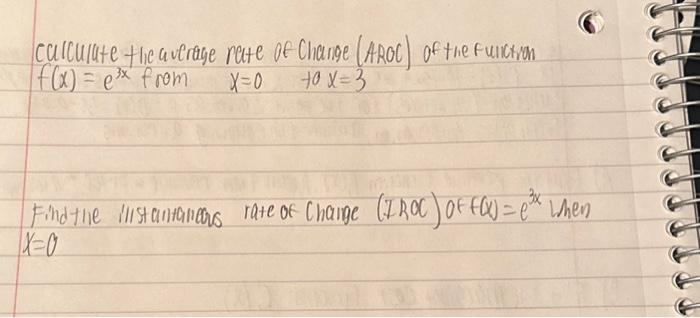 calculate the average rate of Change (AROC) of the function
f(x) = e^{3x} from x=0 to x=3
Find the instantaneous rate of Change (IROC) of f(x) = e^{3x} when
x=0